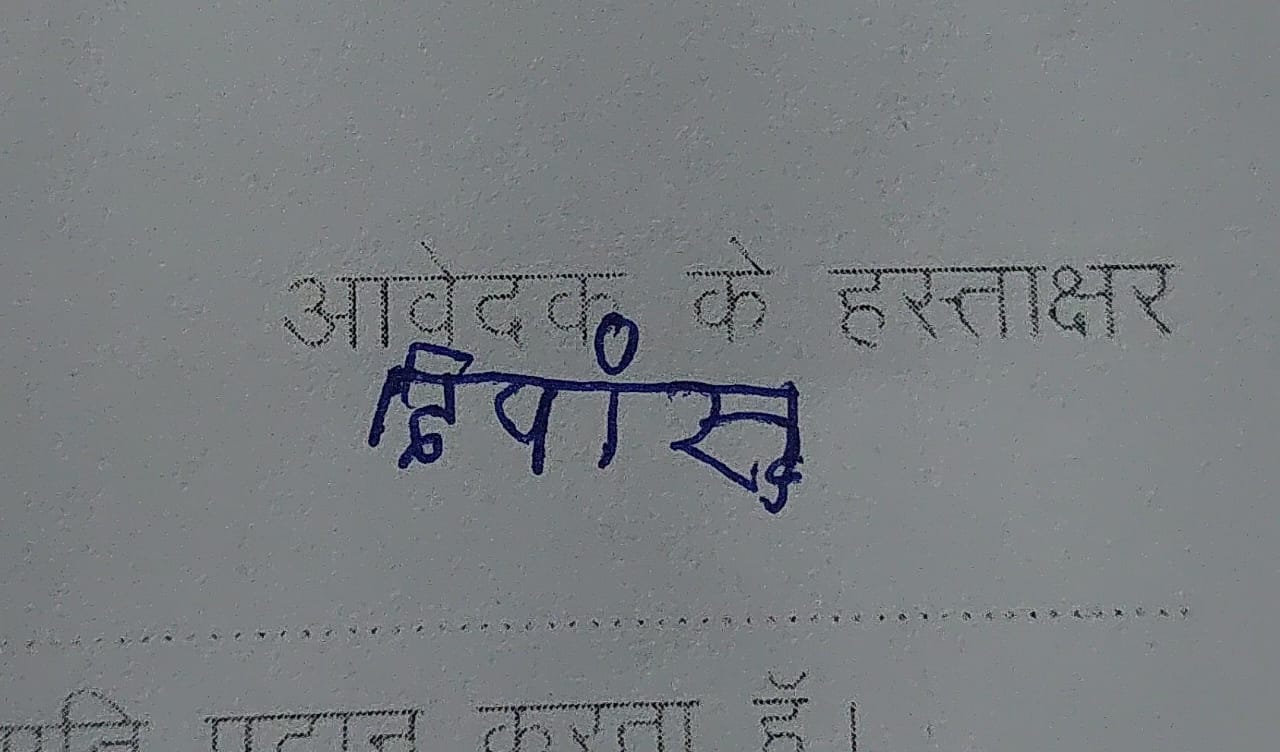 आवेदक के हस्ताक्षर
दिवांसु
प्रदान करता हूँ।